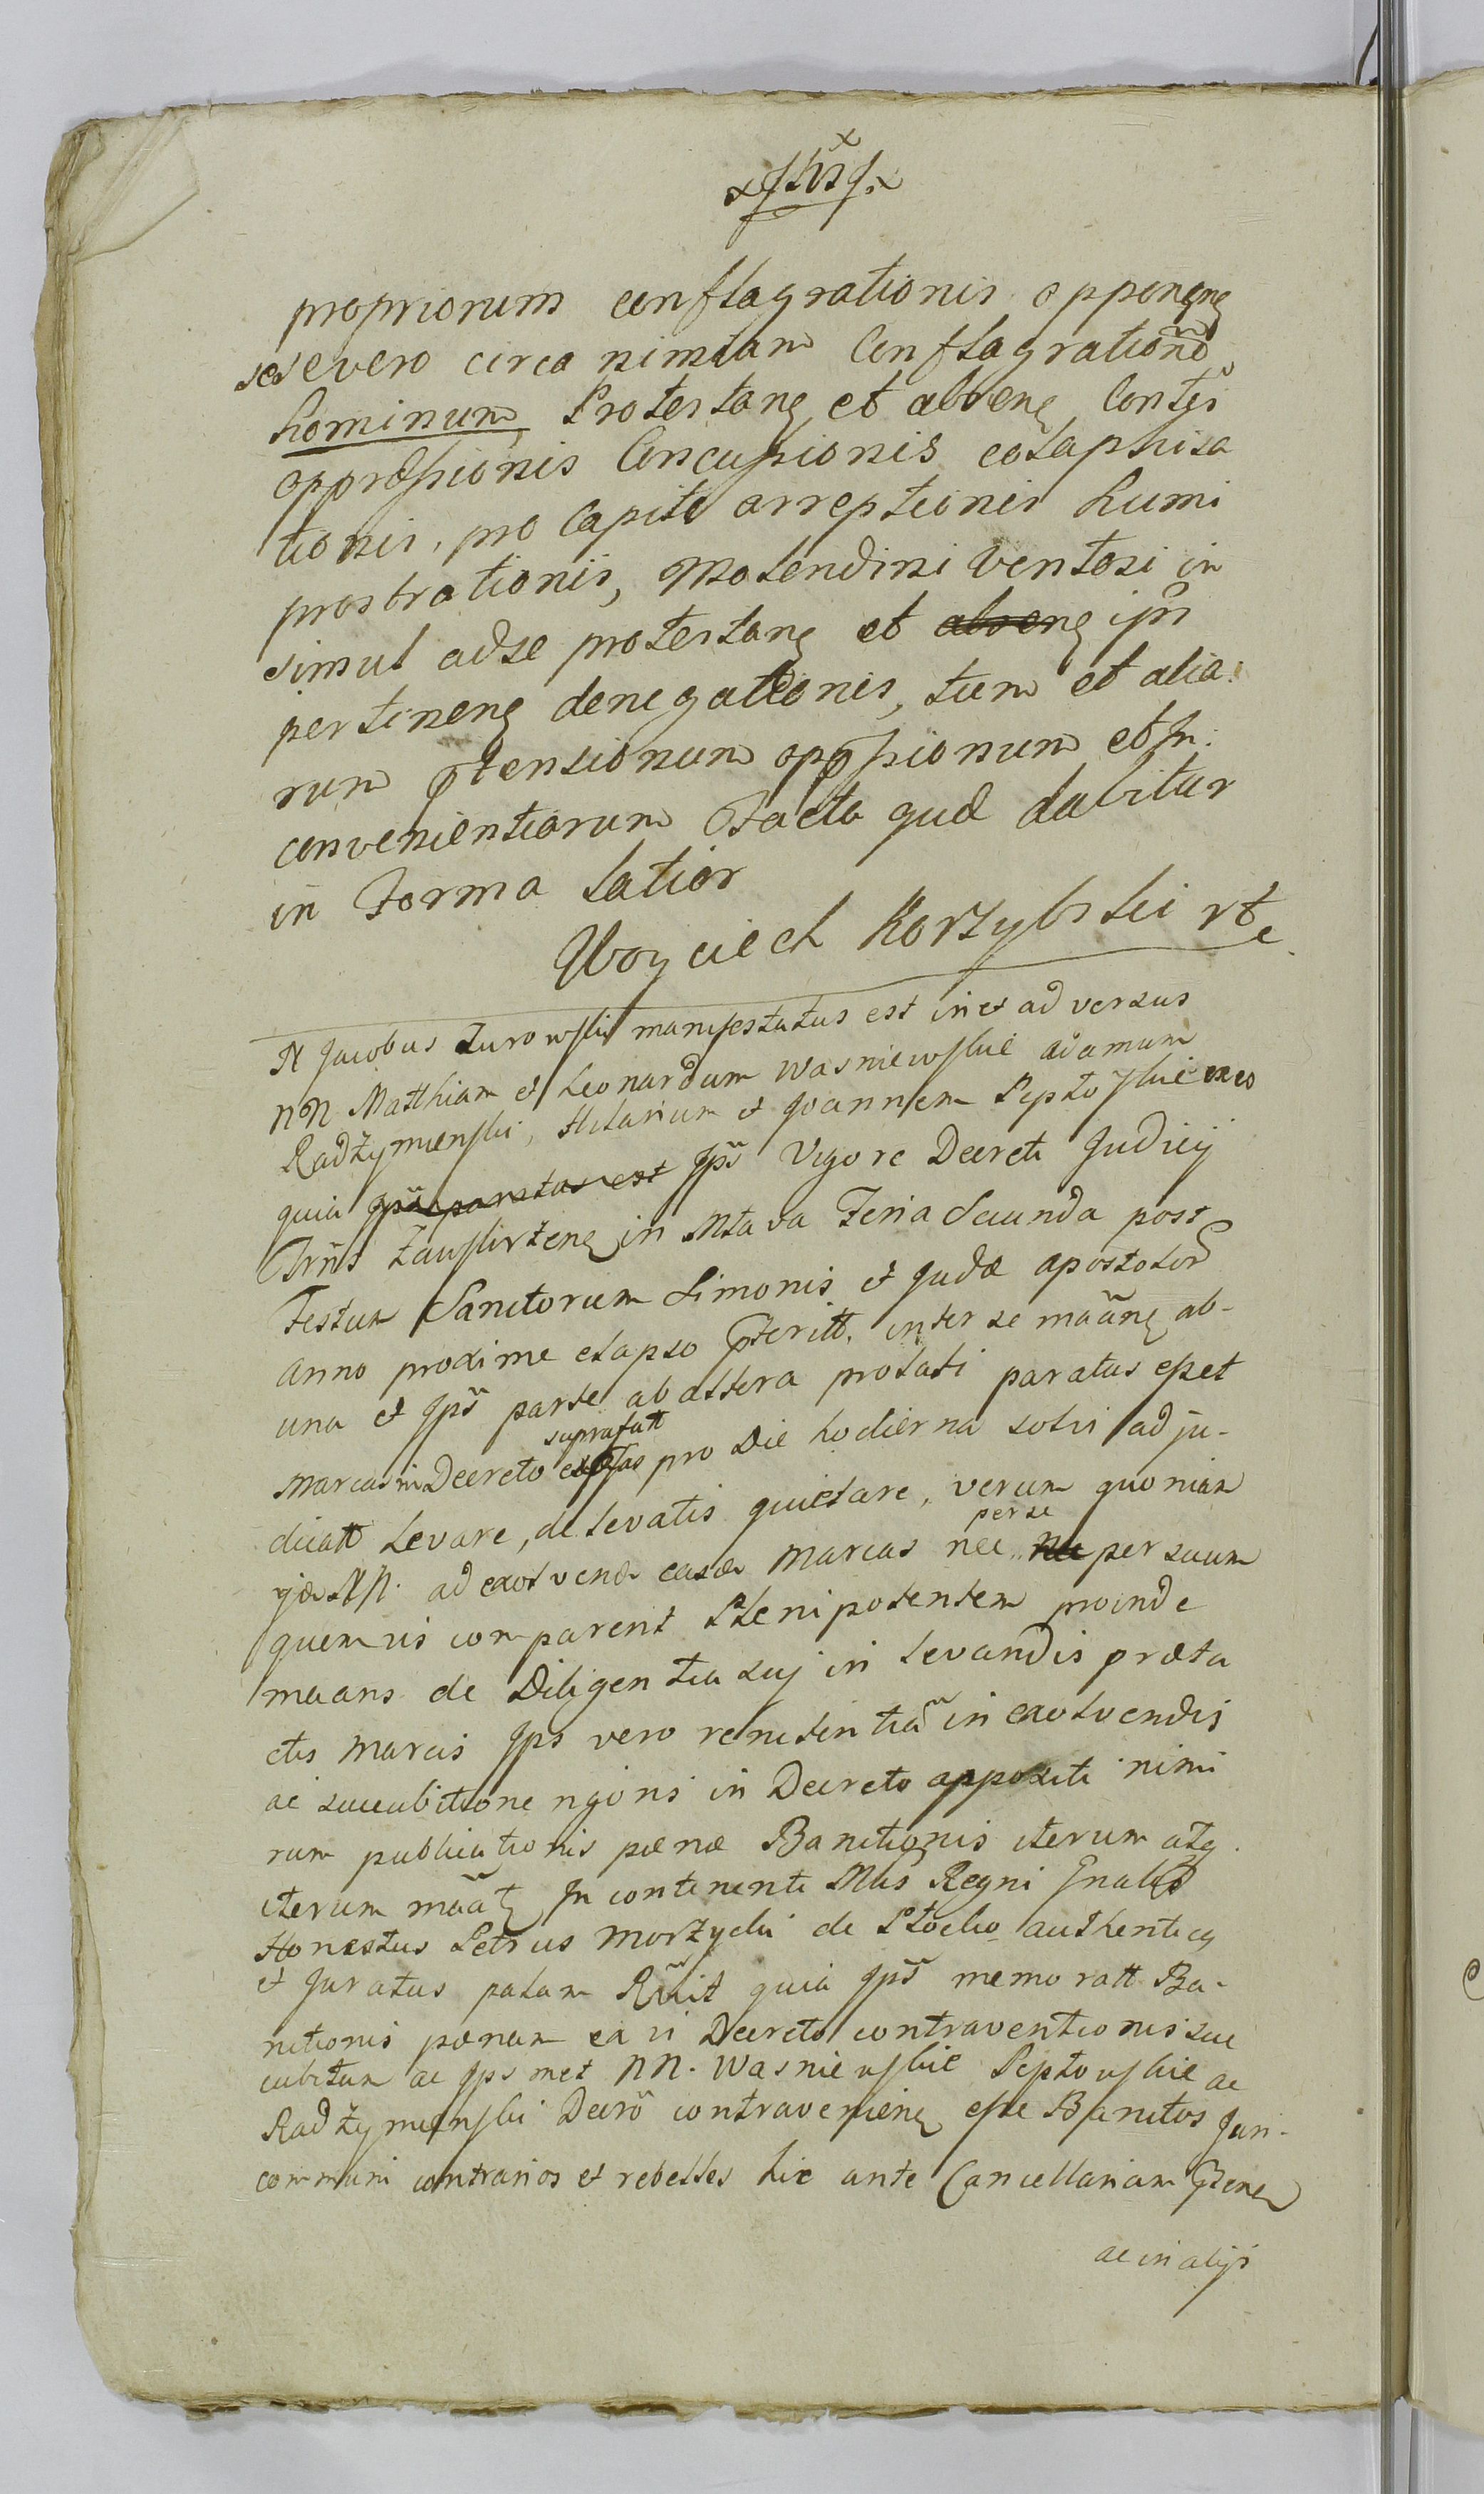 propriorum conflagrationis opponeng
sesevero circa nimiam Conflagrationẽ
hominum Protestang et abreng Contgi
oppressionis Concussionis colaphisa
tionis, pro Capite arreptionis humi
prostrationis, Molendini ventosi in
simul adse protestang et abseng ips
pertineng denegationis, tum et alia
rum ptensionum oppssionum et In:
convenientiarum Facta quæ dabitur
in Forma Latior
Woyciech Korzybski
N Jacobus Turowski manifestatus est in et adversus
NN Matthiam et Leonardum Wasniewskie Adamum
Radzyminski, Hilarium et Joannem Peptowskie ex eo
quia Ips paratus est Ips Vigore Decreti Judicij
Trns Zawskrzeng in Mlava Feria Secunda post
Festum Sanctorum Simonis et Judæ Apostolor
Anno proxime elapso pterit. inter se mãang ab-
una et Ips parte ab altera prolati paratus esset
suprafatt
Marcas in Decreto pro Die hodierna solvi adju-
dicatt Levare, de levatis quietare, verum quoniam
per se
NN. ad exolvend easde Marcas nec ne per suum
quemvis comparent Plenipotentem proinde
maans de Diligentia suj in levandis præta
ctis Marcis Ips vero renitentiã in exolvendis
ac succubitione rigoris in Decreto appositi nimi
rum publicationis pænæ Banitionis iterum atg
iterum mãat In continenti Mlis Regni Gnalis
Honestus Petrus Morzycki de Plocko authenticg
et Juratus palam Rñit quia Ips memoratt Ba-
nitionis pænam ex vi Decreti contraventionis suc
cubitum ac Ips met NN. Wasniewskie Peptowskie ac
Radzyminski Decrõ contravenieng esse Banitos Juri-
communi contrarios et rebelles hic ante Cancellariam Pteng
ac in alijs